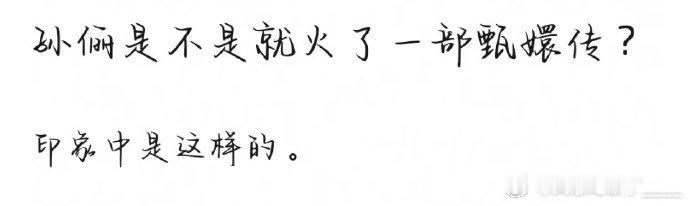 孙俪是不是就火了一部甄嬛传？
印象中是这样的。